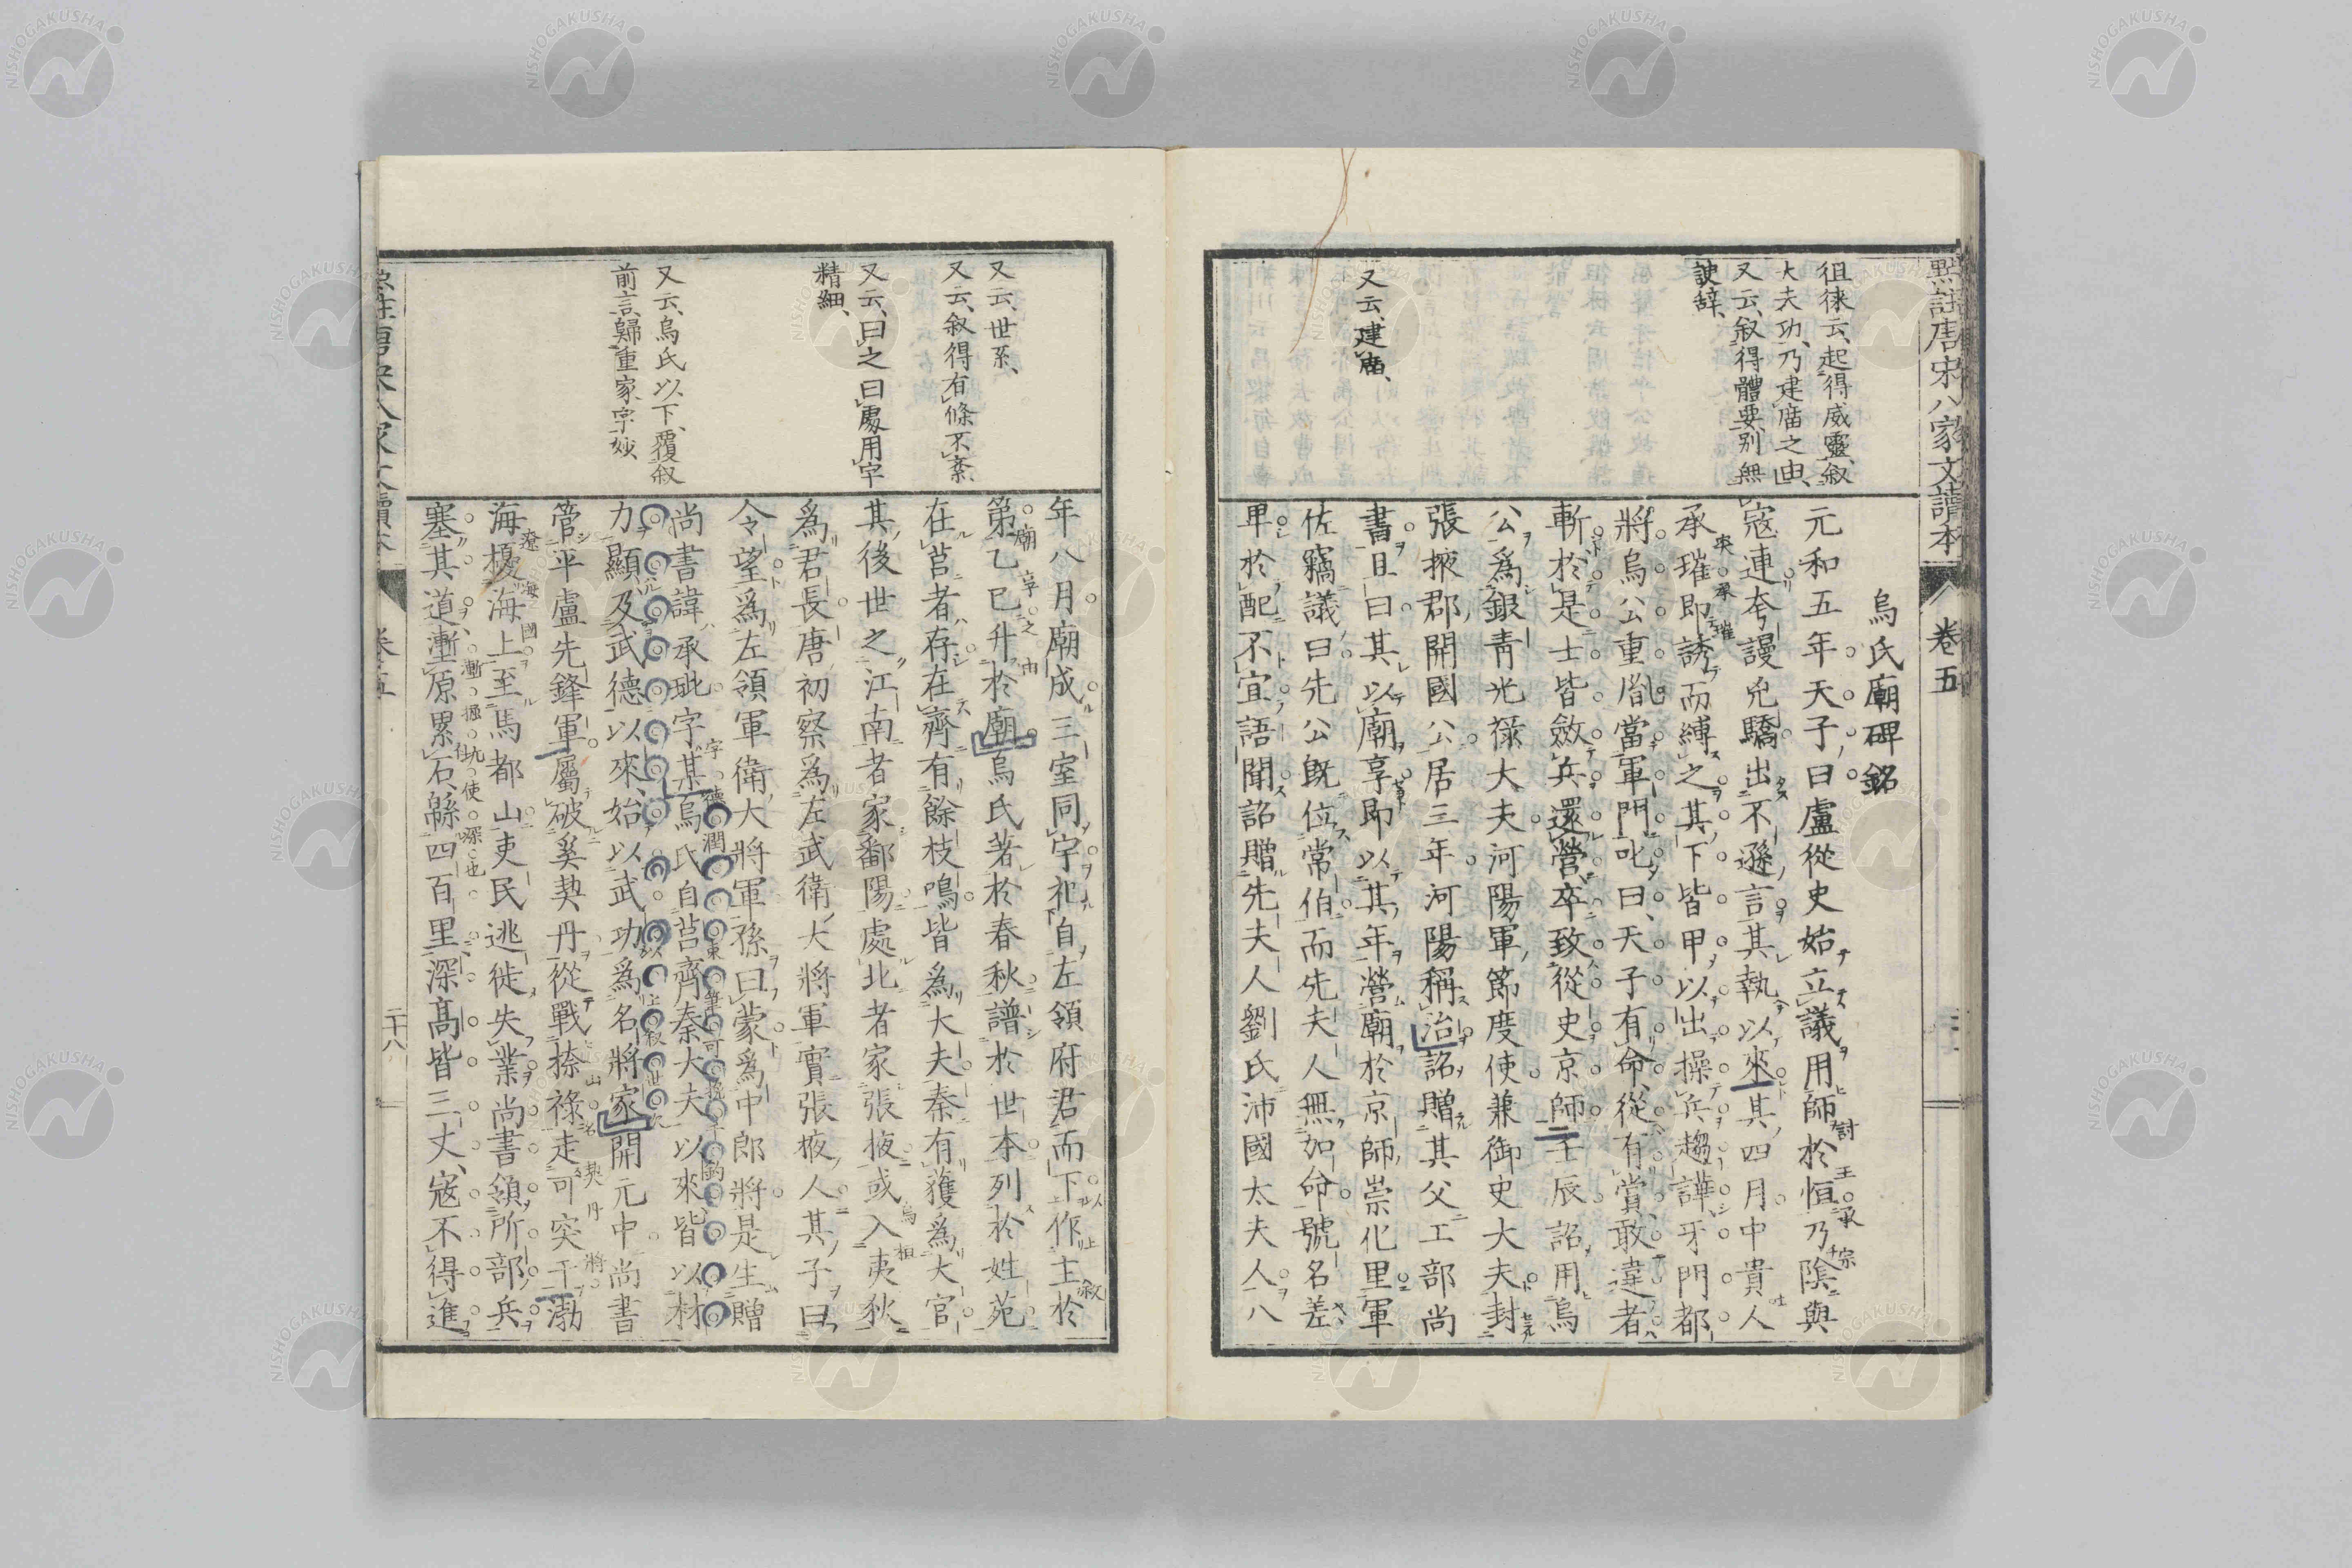 點註唐宋八家文讀本
卷五
徂徠云、起得威靈、叙
大夫功、乃建廟之由、
又云、叙得體要、別無
諛辞、
又云、建廟、
烏氏廟碑銘
元和五年天子曰盧從史始立議用師於恒乃陰與
寇連夸謾兇驕出不遜言其執以來其四月中貴人
承璀即誘而縛之其下皆甲以出操兵趨譁牙門都
將烏公重胤當軍門叱曰、天子有命、從有賞、敢違者
斬於是士皆斂兵還營卒致從史京師壬辰詔用烏
公爲銀青光祿大夫河陽軍節度使兼御史大夫封
張掖郡開國公居三年河陽稱治詔贈其父工部尚
書且曰其以廟享即以其年營廟於京師崇化里軍
佐竊議曰先公既位常伯而先夫人無加命號名差
卑於配不宜語聞詔贈先夫人劉氏沛國太夫人八
又云、世系、
又云、叙得有條不紊、
又云、曰之曰處、用字
精細、
又云、烏氏以下、覆叙
前言、歸重家字妙、
年八月廟成三室同宇祀自左領府君而下作主於
第乙巳升於廟烏氏著於春秋譜於世本列於姓苑
在莒者存在齊有餘枝鳴皆爲大夫秦有獲爲大官
其後世之江南者家鄱陽處北者家張掖或入夷狄
爲君長唐初察爲左武衛大將軍實張掖人其子曰
令望爲左領軍衛大將軍孫曰蒙爲中郎將是生贈
尚書諱承玼字某烏氏自莒齊秦大夫以來皆以材
力顯及武德以來、始以武功爲名將家開元中尚書
管平盧先鋒軍屬破奚契丹從戰捺祿走可突干渤
海擾海上至馬都山吏民逃徙失業尚書領所部兵
塞其道塹原累石緜四百里深高皆三丈、寇不得進
卷五
二十八